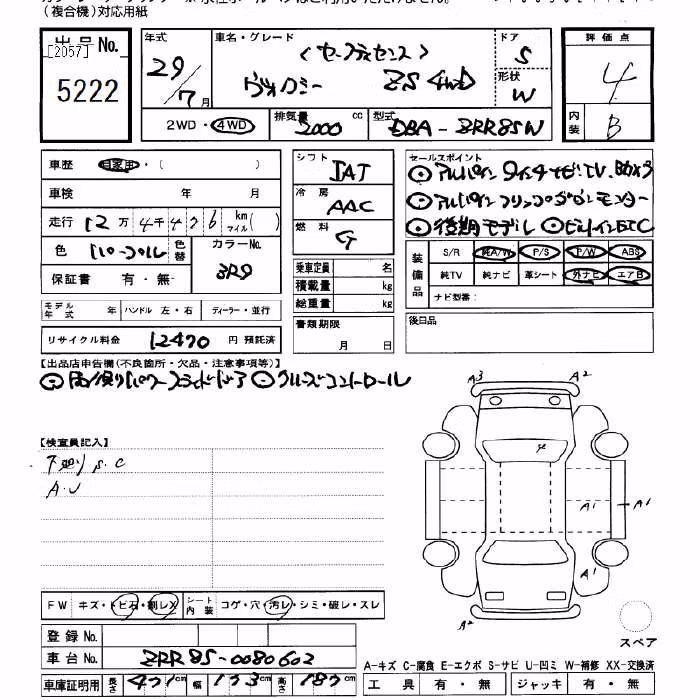 (複合機)対応用紙
出品No.
[2057]
5222
年式 29/7月
車名・グレード
<セーフティセンス>
ヴォクシー ZS 4WD
ドア 5
形状 W
評価点 4
内装 B
2WD・4WD
排気量 2000 cc
型式 DBA-ZRR85W
車歴 自家用・( )
車検 年 月
走行 12万4千476km マイル( )
色 色替 カラーNo. 3R9
保証書 有・無
モデル年式 年 ハンドル 左・右 ディーラー・並行
リサイクル料金 12470 円 預託済
シフト IAT
冷房 AAC
燃料 G
乗車定員 名
積載量 kg
総重量 kg
書類期限
月 日
セールスポイント
◎アルパイン 9インチナビTV, BOX3
◎アルパイン フリップダウンモニター
◎後期モデル ◎ビルトインETC
装備品
S/R 純A/W P/S P/W ABS
純TV 純ナビ 革シート 外ナビ エアB
ナビ型番:
後日品
【出品店申告欄(不良箇所・欠品・注意事項等)】
◎両側パワースライドドア ◎クルーズコントロール
【検査員記入】
下廻り S.C
A.U
A3 A2
A1 A1
A1
A2
スペア
FW キズ・トビ石・割レX シート内装 コゲ・穴・汚レ・シミ・破レ・スレ
登録No.
車台No. ZRR85-0080602
車庫証明用 長さ 471cm 幅 173cm 高さ 187cm
A-キズ C-腐食 E-エクボ S-サビ U-凹ミ W-補修 XX-交換済
工具 有・無 ジャッキ 有・無